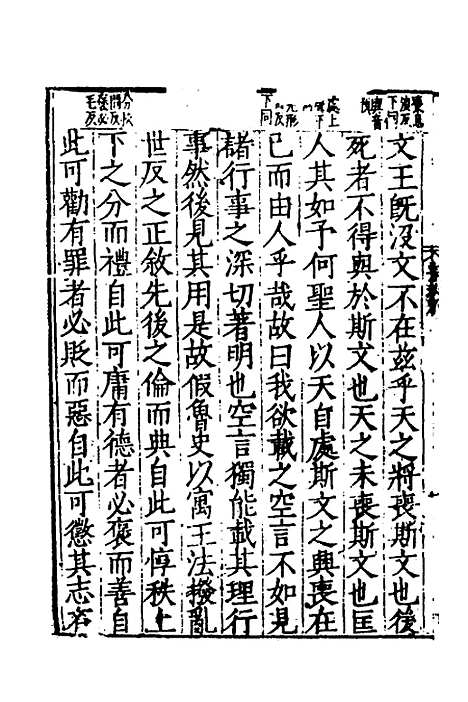 文王旣沒文不在兹乎天之將喪斯文也後
死者不得與於斯文也天之未喪斯文也匡
人其如予何聖人以天自處斯文之興喪在
己而由人乎哉故曰我欲載之空言不如見
諸行事之深切著明也空言獨能載其理行
事然後見其用是故假魯史以寓王法撥亂
世反之正敘先後之倫而典自此可惇秩上
下之分而禮自此可庸有德者必褒而善自
此可勸有罪者必貶而惡自此可懲其志存